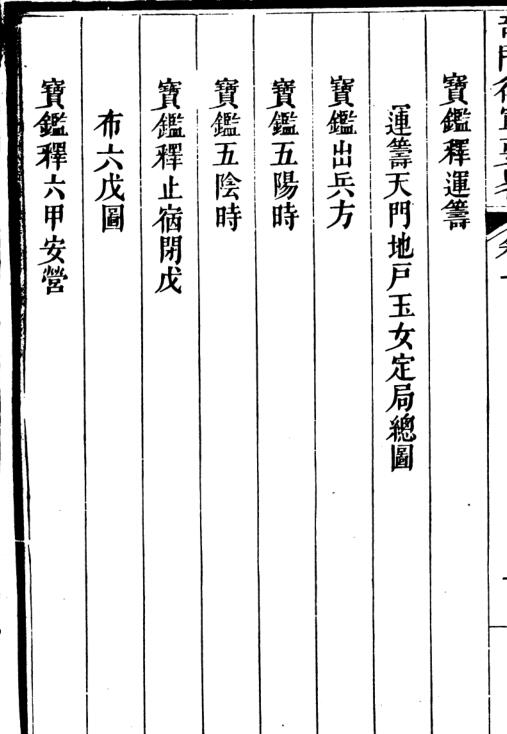 寶鑑釋運籌
運籌天門地戸玉女定局總圖
寶鑑出兵方
寶鑑五陽時
寶鑑五陰時
寶鑑釋止宿閉戊
布六戊圖
寶鑑釋六甲安營